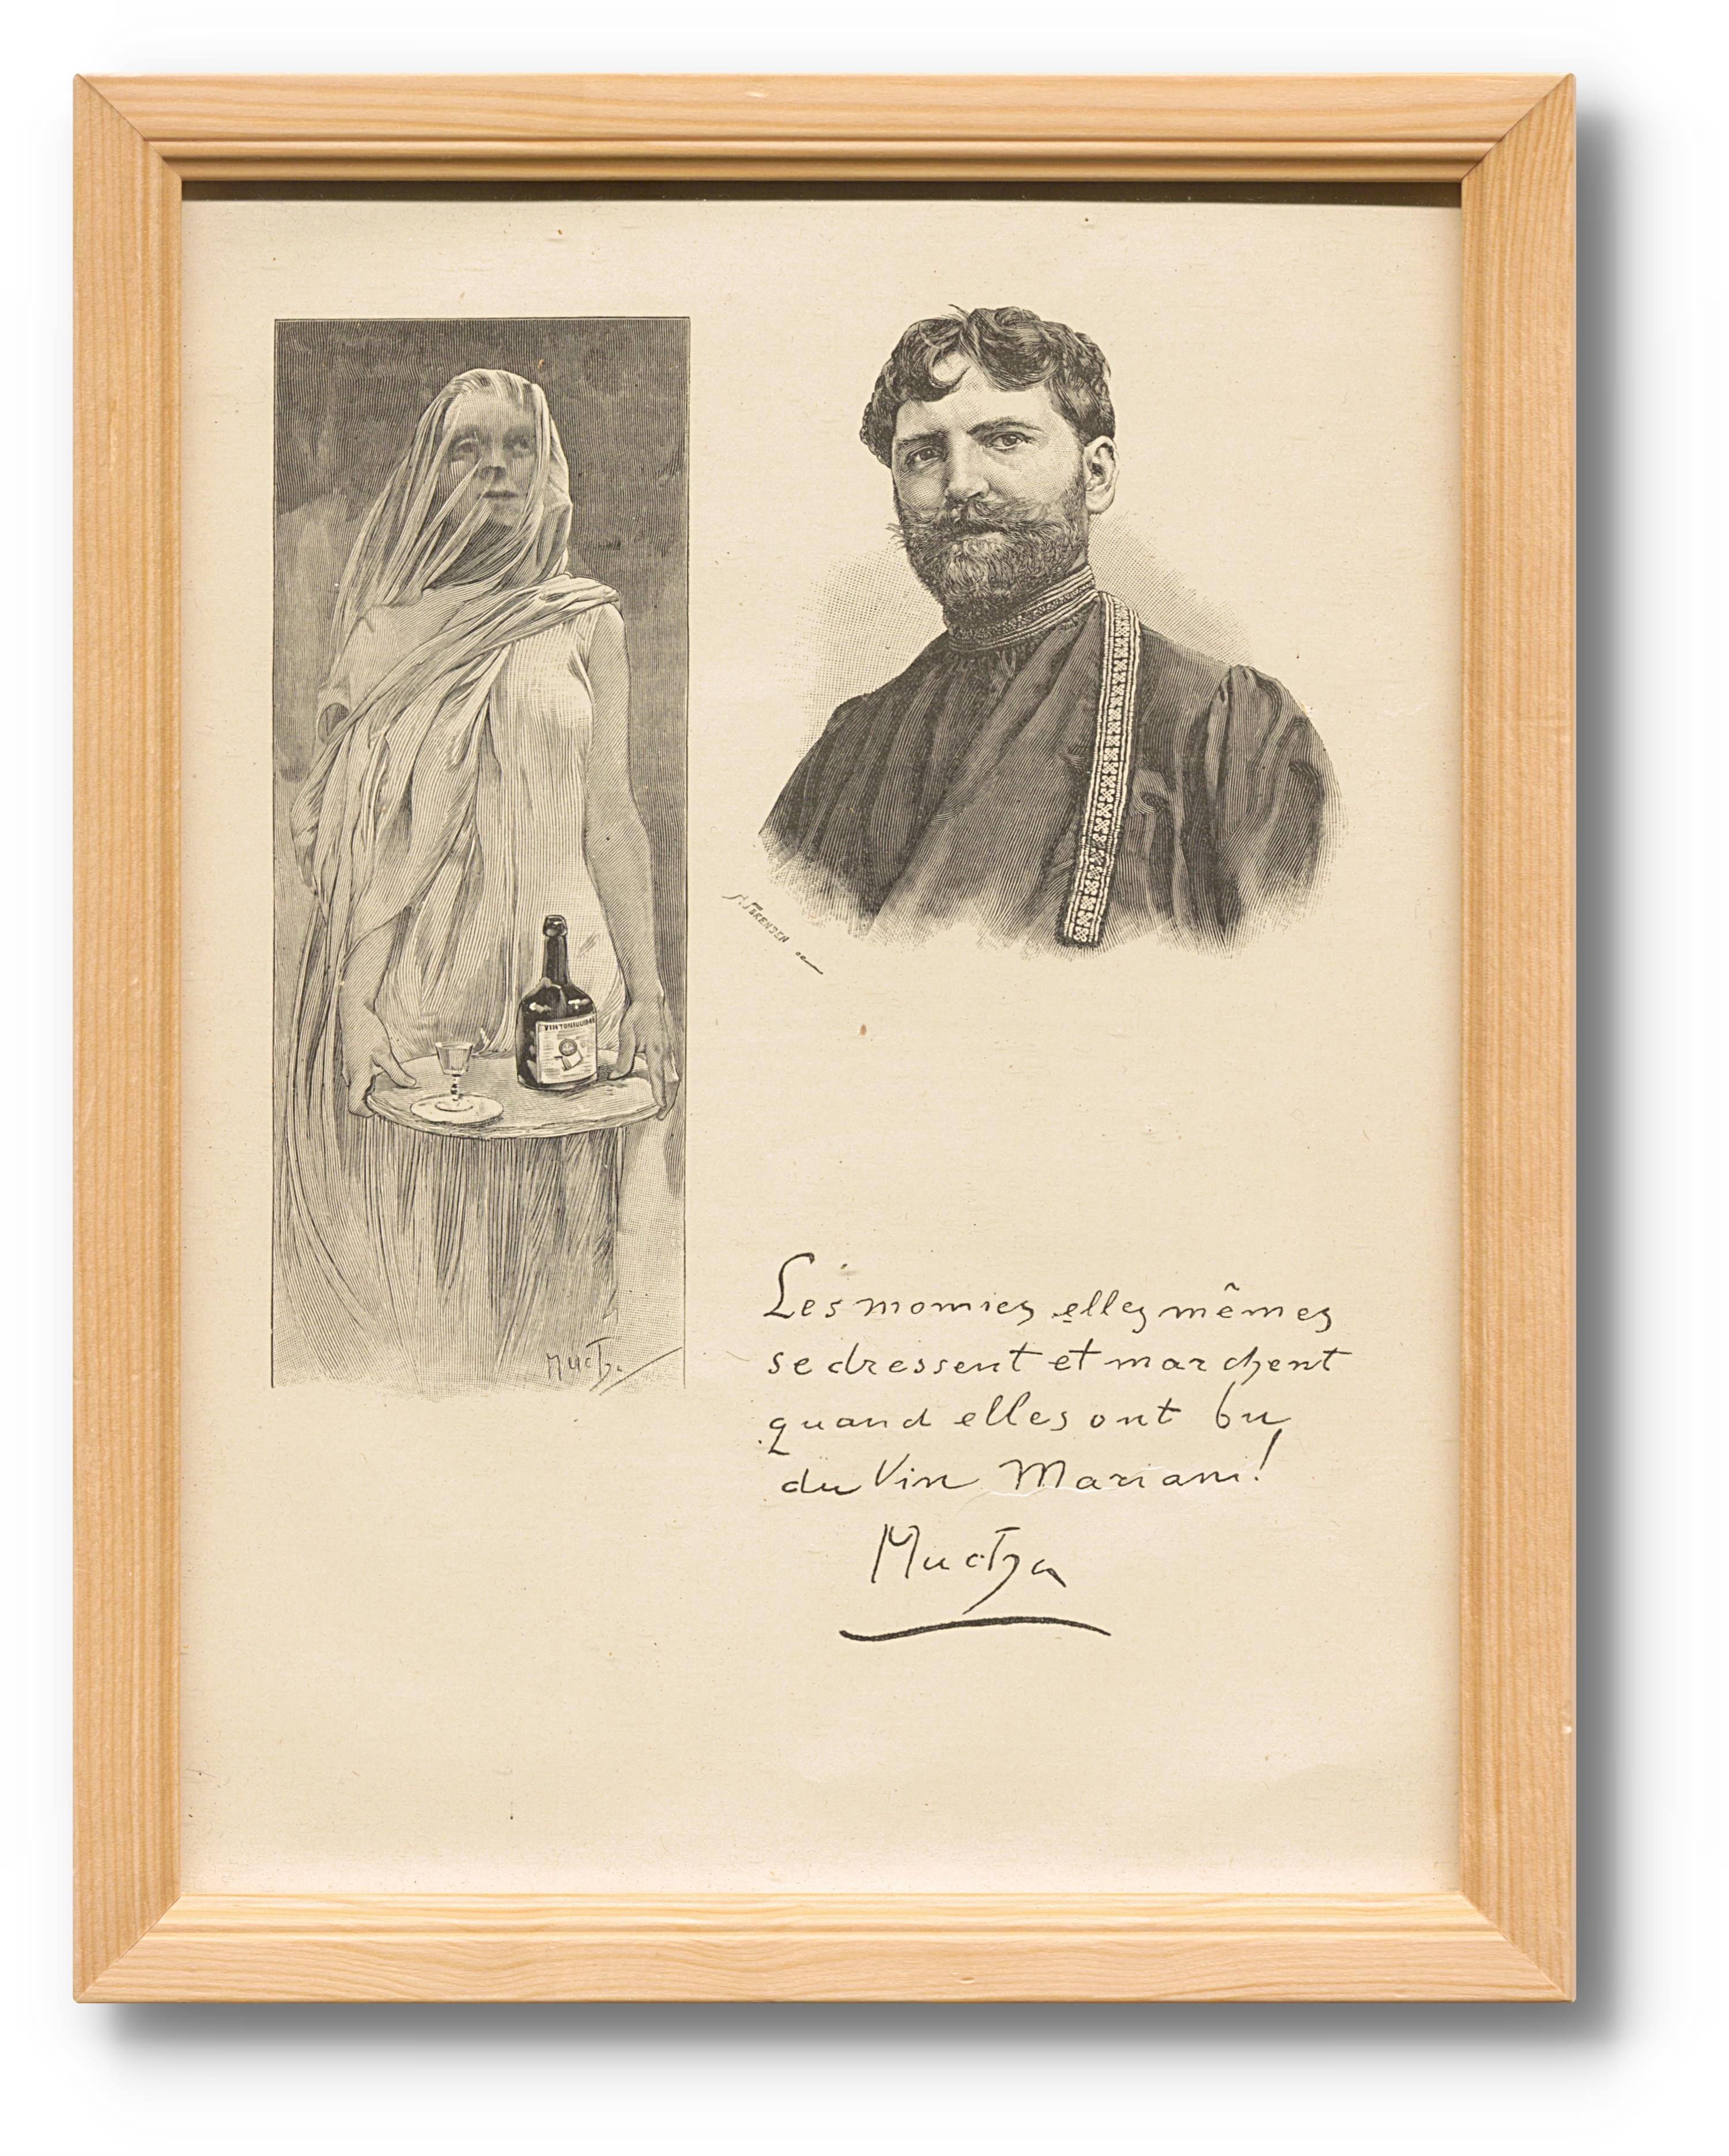 VIN TONIQUE
Mucha
H. SÖRENSEN sc
Les momies elles mêmes
se dressent et marchent
quand elles ont bu
du Vin Mariani!
Mucha